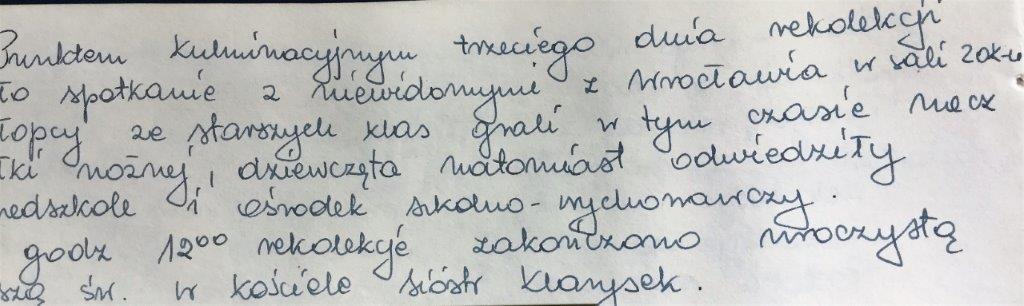 Punktem kulminacyjnym trzeciego dnia rekolekcji
ło spotkanie z niewidomymi z Wrocławia w sali ZOK-u
łopcy ze starszych klas grali w tym czasie mecz
łki nożnej, dziewczęta natomiast odwiedziły
zedszkole i ośrodek szkolno-wychowawczy.
godz 12⁰⁰ rekolekcje zakończono uroczystą
szą św. w kościele sióstr Klarysek.